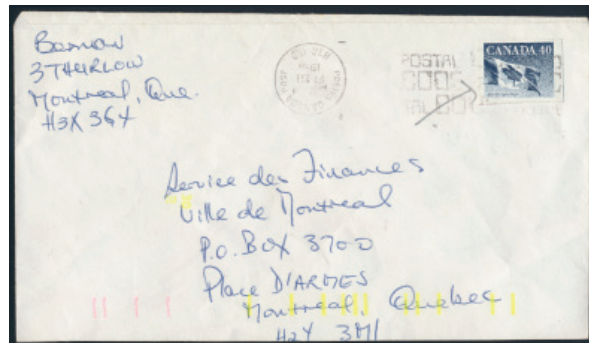 3 THURLOW
Montreal, Que.
H3X 3G4
POSTAL
CODE
CANADA 40
Service des Finances
Ville de Montreal
P.O. BOX 3700
Place D'ARMES
Montreal, Quebec
H2Y 3M1